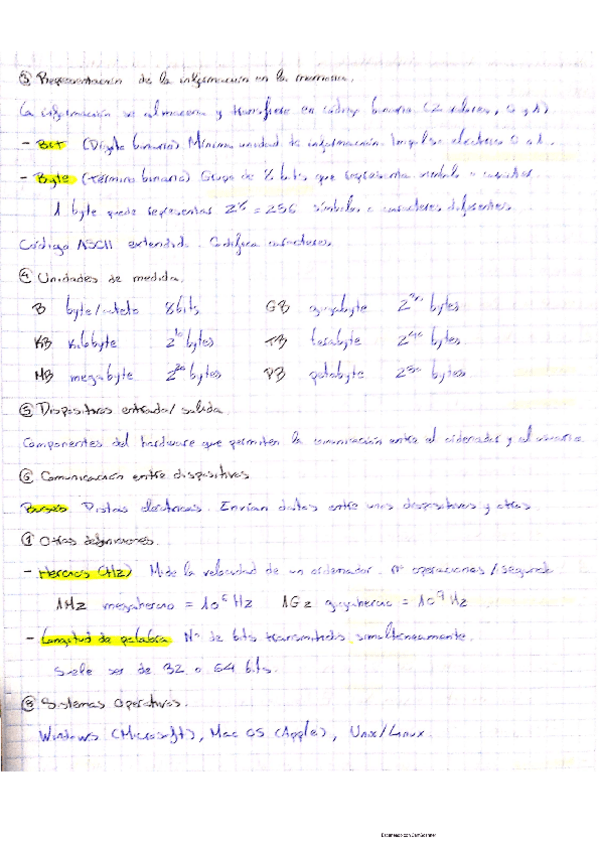 ③ Representación de la información en la memoria.
La información se almacena y transfiere en código binario (2 valores, 0 y 1)
- Bit (Dígito binario). Mínima unidad de información. Impulso eléctrico 0 o 1.
- Byte (Término binario) Grupo de 8 bits que representa símbolo o carácter.
1 byte puede representar 2⁸ = 256 símbolos o caracteres diferentes
Código ASCII extendido. Codifica caracteres
④ Unidades de medida.
B byte/octeto 8bits GB gigabyte 2³⁰ bytes
KB kilobyte 2¹⁰ bytes TB terabyte 2⁴⁰ bytes
MB megabyte 2²⁰ bytes PB petabyte 2⁵⁰ bytes
⑤ Dispositivos entrada/salida
Componentes del hardware que permiten la comunicación entre el ordenador y el usuario.
⑥ Comunicación entre dispositivos
Buses Pistas eléctricas. Envían datos entre unos dispositivos y otros
⑦ Otras definiciones.
- Hercios (Hz) Mide la velocidad de un ordenador. nº operaciones/segundo
1Hz megahercio = 10⁶ Hz 1Gz gigahercio = 10⁹ Hz
- Longitud de palabra Nº de bits transmitidos simultáneamente.
Suele ser de 32 o 64 bits.
⑧ Sistemas Operativos.
Windows (Microsoft), Mac OS (Apple), Unix/Linux.
Escaneado con CamScanner